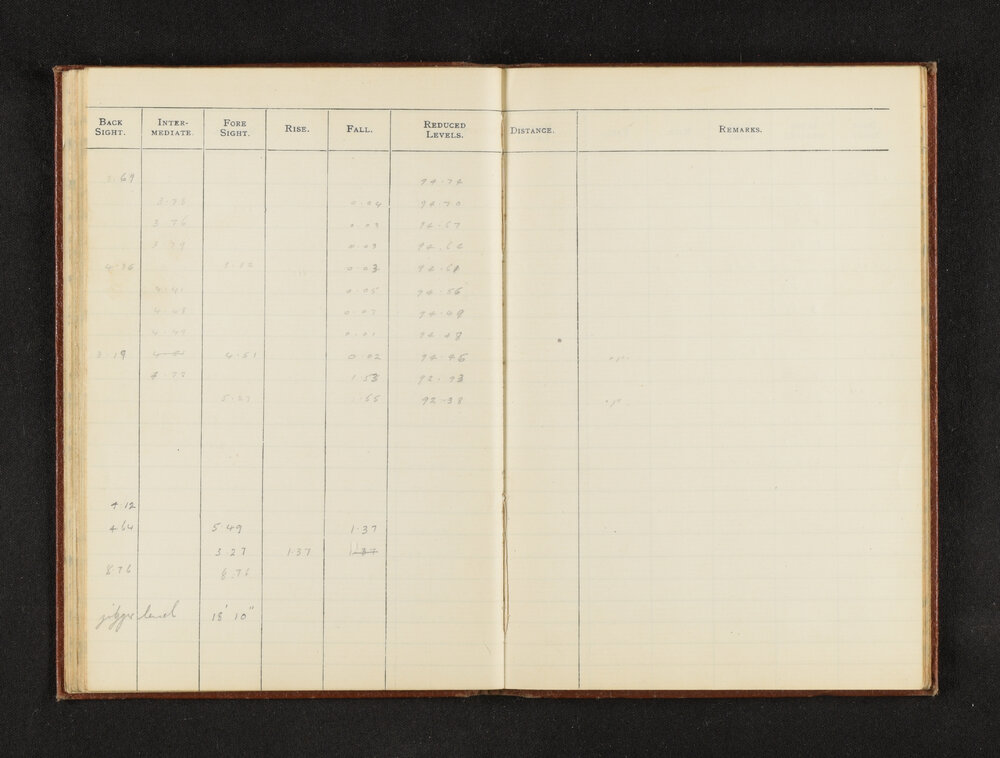 BACK SIGHT. INTER-MEDIATE. FORE SIGHT. RISE. FALL. REDUCED LEVELS. DISTANCE. REMARKS.
3.69 94.74
3.73 0.04 94.70
3.76 0.03 94.67
3.79 0.03 94.64
4.36 3.82 0.03 94.61
4.41 0.05 94.56
4.48 0.07 94.49
4.49 0.01 94.48
3.19 4.51 0.02 94.46
4.72 1.53 92.93
5.27 .55 92.38
4 12
4 64 5.49 1.37
3.27 1.37 1.37
8.76 8.76
level 18' 10"